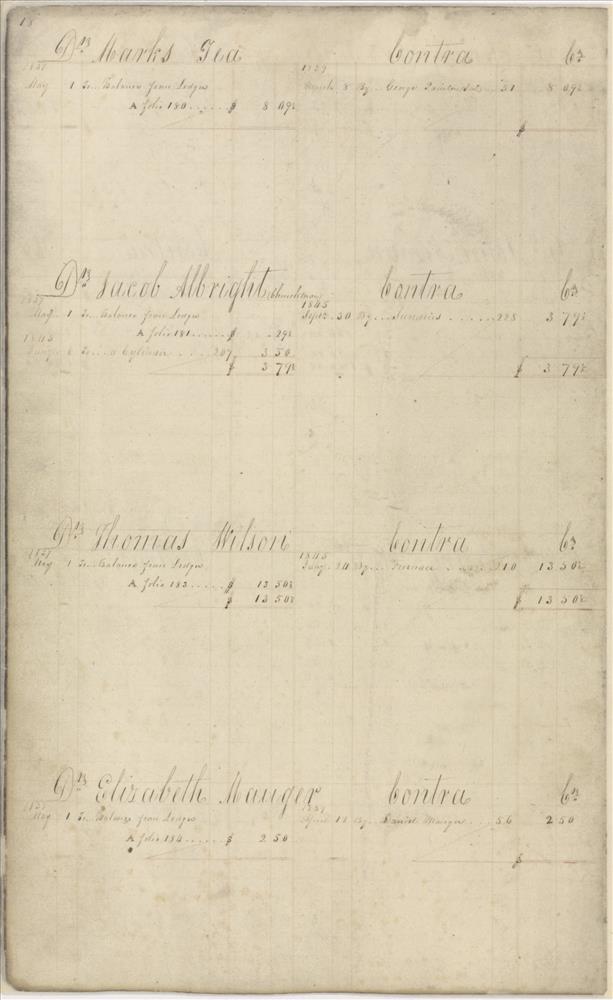 18
Dr Marks Gea Contra Cr
1837 1839
May 1 To Balance from Ledger March 8 By George 31 8 09½
A folio 180 $ 8 09½
$
Dr Jacob Albright Contra Cr
1837 1845
May 1 To Balance from Ledger Sept 30 By Sundries 228 3 79½
A folio 181 $ 29½
1845
6 To a Cylinder 207 3 50
$ 3 79½ $ 3 79½
Dr Thomas Wilson Contra Cr
1837 1845
May 1 To Balance from Ledger Jany 24 By Furnace 210 13 50½
A folio 183 $ 13 50½
$ 13 50½ $ 13 50½
Dr Elizabeth Mauger Contra Cr
1837 1839
May 1 To Balance from Ledger April 12 By David Mauger 56 2 50
A folio 184 $ 2 50
$